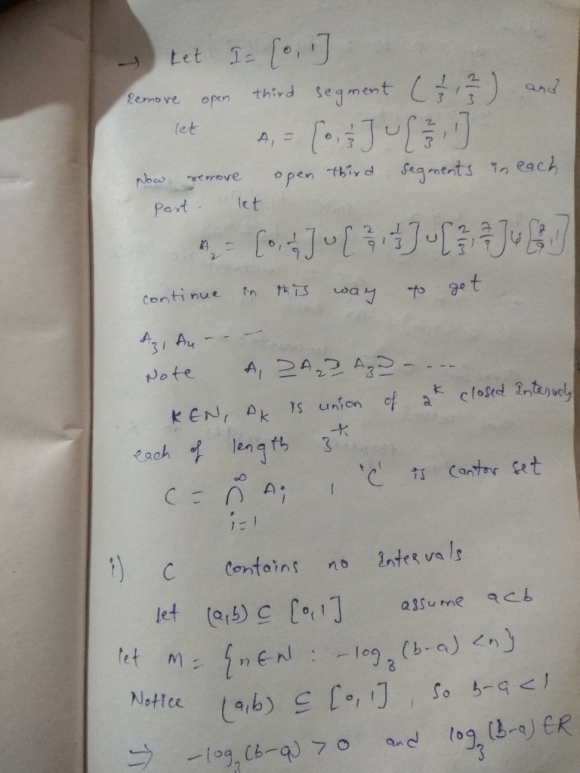 → Let I = [0,1]
Remove open third segment (1/3, 2/3) and
let A₁ = [0, 1/3] ∪ [2/3, 1]
Now remove open third segments in each
part. let
A₂ = [0, 1/9] ∪ [2/9, 1/3] ∪ [2/3, 7/9] ∪ [8/9, 1]
continue in this way to get
A₃, A₄ - - - -
Note A₁ ⊇ A₂ ⊇ A₃ ⊇ - - - -
K ∈ N, Aₖ is union of 2ᵏ closed Intervals
each of length 3⁻ᵏ
C = ∞∩i=1 Aᵢ , 'C' is cantor set
i) C contains no Intervals
let (a,b) ⊆ [0,1] assume a<b
let M = {n∈N : -log₃(b-a) < n}
Notice (a,b) ⊆ [0,1], So b-a < 1
⇒ -log₃(b-a) > 0 and log₃(b-a) ∈ R